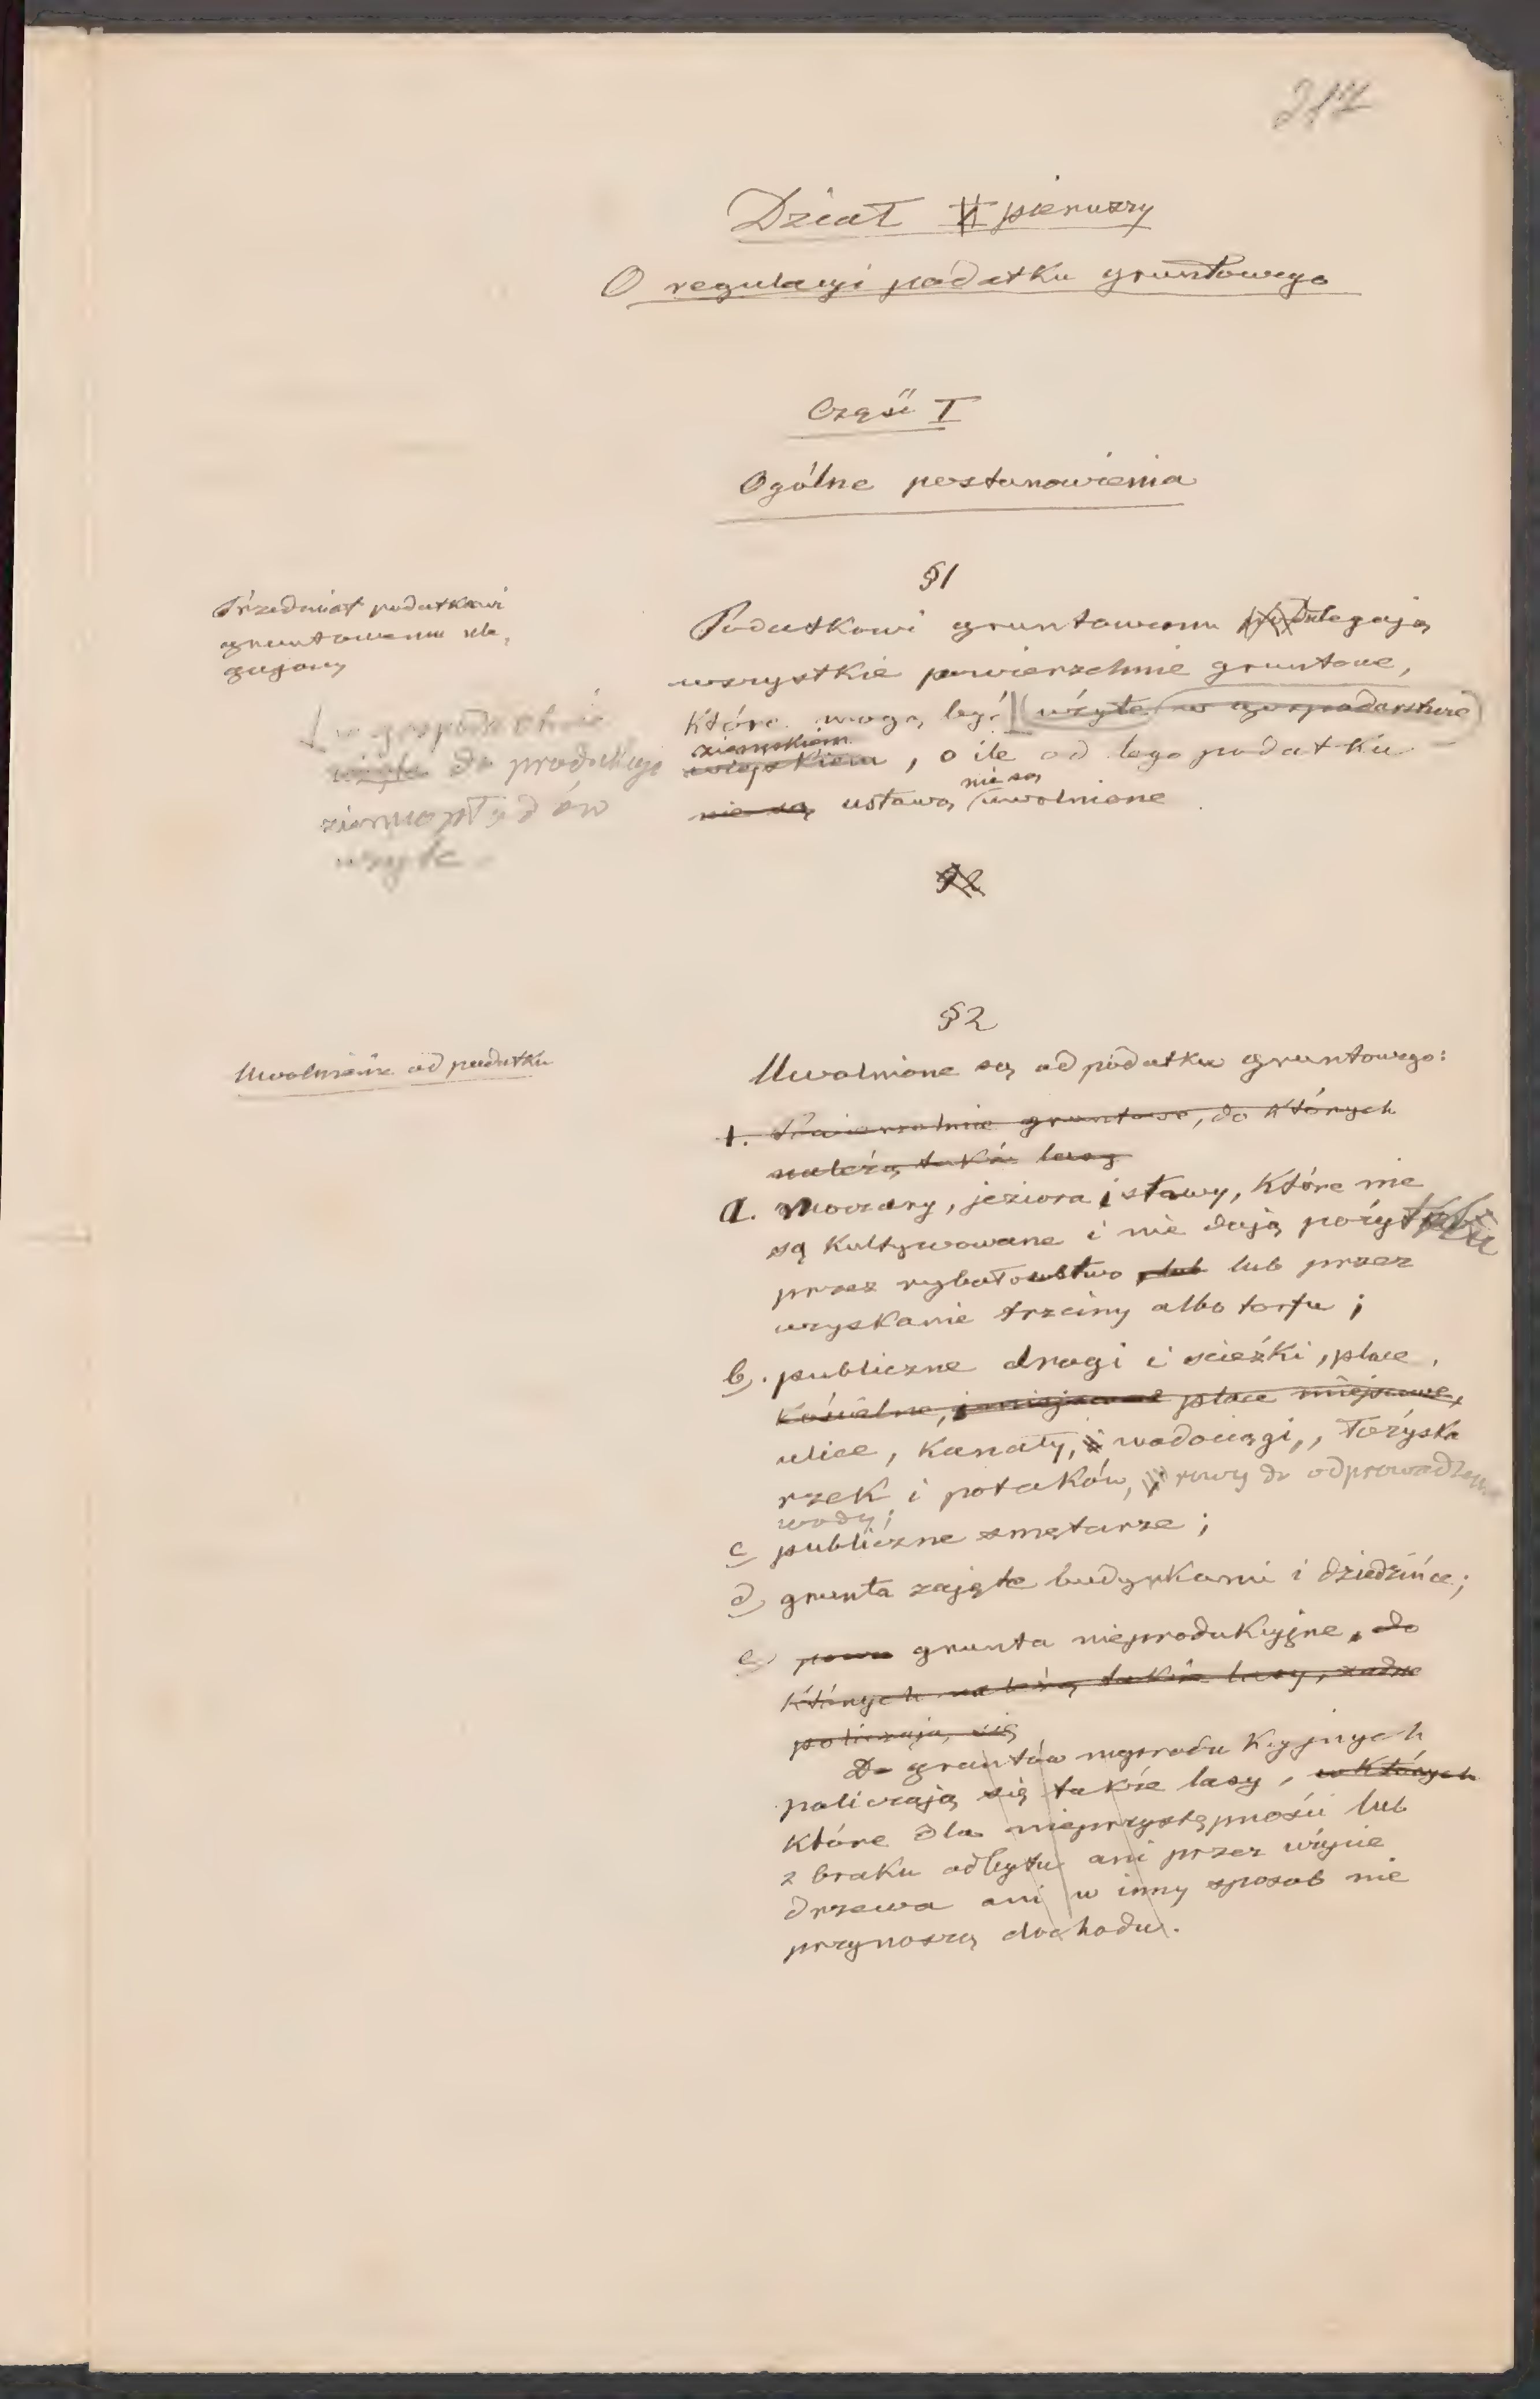 217
Dział II pierwszy
O regulacyi podatku gruntowego
Część I
Ogólne postanowienia
§1
Przedmiot podatkowi
gruntowemu ule,
gający
Podatkowi gruntowemu podulegają
wszystkie powierzchnie gruntowe,
które mogą być użyte w gospodarstwie
ziemskiem
wiejskiem, o ile od tego podatku
nie są
nie są ustawą uwolnione
w gospodarstwie
użyte do produkcyi
ziemiopłodów
użyte
§2
§2
Uwolnienie od podatku
Uwolnione są od podatku gruntowego:
1. Powierzchnie gruntowe, do których
należą także lasy
a. Moczary, jeziora i stawy, które nie
są kultywowane i nie dają pożytku
przez rybołowstwo lub lub przez
uzyskanie trzciny albo torfu;
b. publiczne drogi i scieżki, place,
kościelne, place miejscowe,
ulice, kanały, i wodociągi, łożyska
rzek i potoków, i rowy do odprowadzenia
wody;
c publiczne smętarze;
d, grunta zajęte budynkami i dziedzińce;
e, grunta nieprodukcyjne, do
których należą także lasy,
policzają się
Do gruntów nieprodukcyjnych
policzają się także lasy, w których
które dla nieprzystępności lub
z braku odbytu ani przez użycie
drzewa ani w inny sposob nie
przynoszą dochodu.